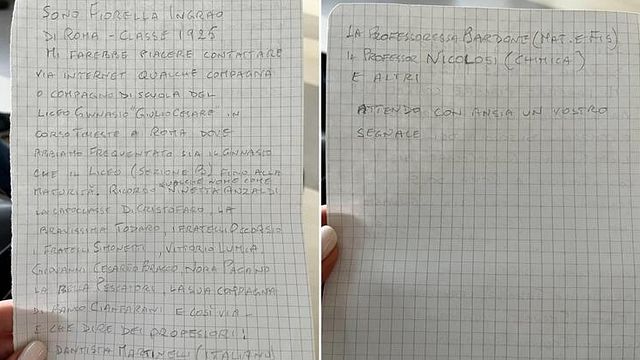 SONO FIORELLA INGRAO
DI ROMA - CLASSE 1925
MI FAREBBE PIACERE CONTATTARE
VIA INTERNET QUALCHE COMPAGNA
O COMPAGNO DI SCUOLA DEL
LICEO GINNASIO "GIULIO CESARE" IN
CORSO TRIESTE A ROMA DOVE
ABBIAMO FREQUENTATO SIA IL GINNASIO
CHE IL LICEO (SEZIONE B) FINO ALLA
MATURITÀ. RICORDO QUALCHE NOME COME NINETTA ANZALDI
LA CAPOCLASSE DI CRISTOFARO, LA
BRAVISSIMA TODARO, I FRATELLI
FRATELLI SIMONETTI, VITTORIO LUMIA,
GIOVANNI CESAREO, NORA PAGANO
LA BELLA PESCATORI, LA SUA COMPAGNA
DI BANCO CIANFARANI E COSÌ VIA -
E CHE DIRE DEI PROFESSORI!
DANTISTA MARTINELLI (ITALIANO)
LA PROFESSORESSA BARDONE (MAT. E FIS)
IL PROFESSOR NICOLOSI (CHIMICA)
E ALTRI
ATTENDO CON ANSIA UN VOSTRO
SEGNALE